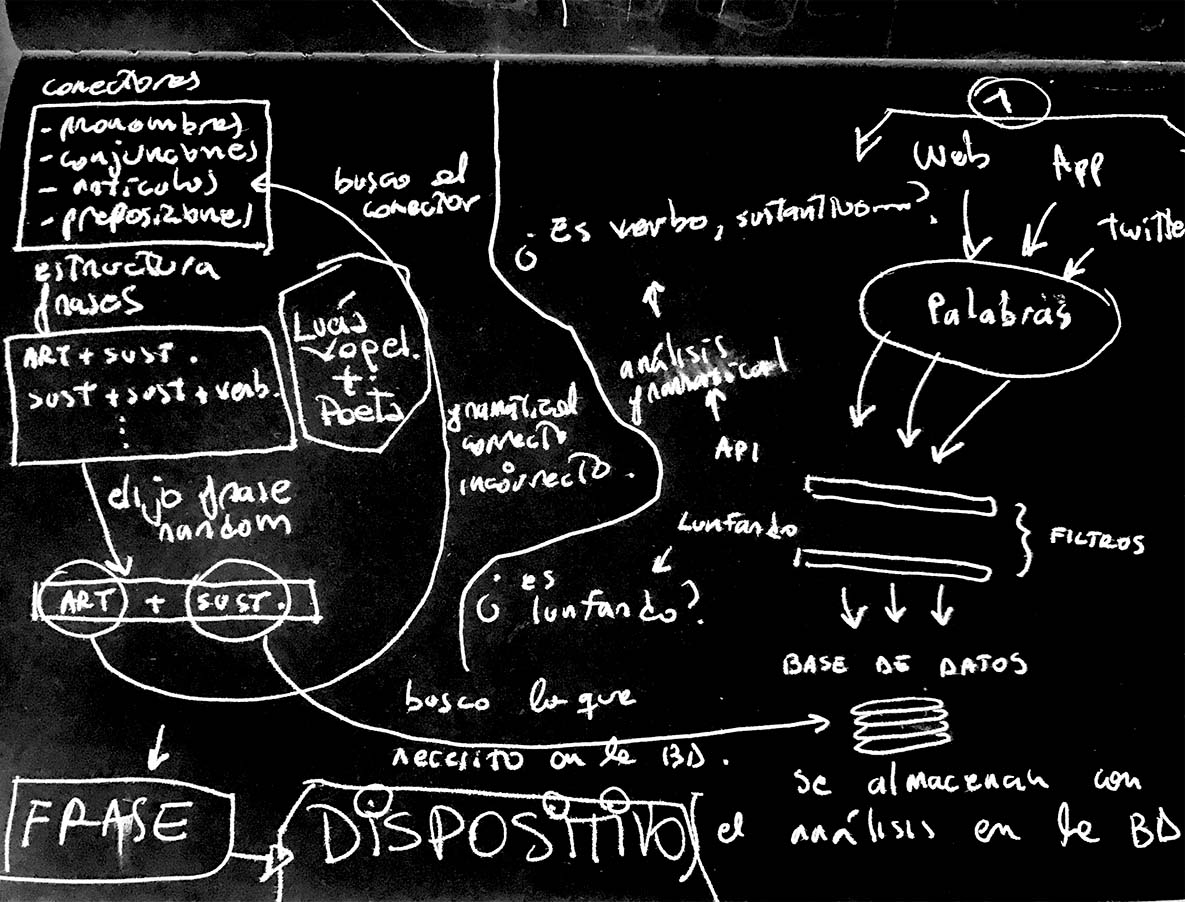 conectores
- pronombres
- conjunciones
- artículos
- preposiziones
busco el
conector
estructura
frases
ART + SUST.
SUST + SUST + verb.
Lucas
+
Poeta
elijo frase
random
ART + SUST.
FRASE
DiSPOSiTiVO
gramatical
correcto
incorrecto.
¿ Es verbo, sustantivo ?
análisis
gramatical
API
Lunfardo
¿ es
lunfardo?
busco lo que
necesito en la BD.
1
Web
App
twitte
Palabras
FILTROS
BASE DE DATOS
se almacenan con
el análisis en la BD